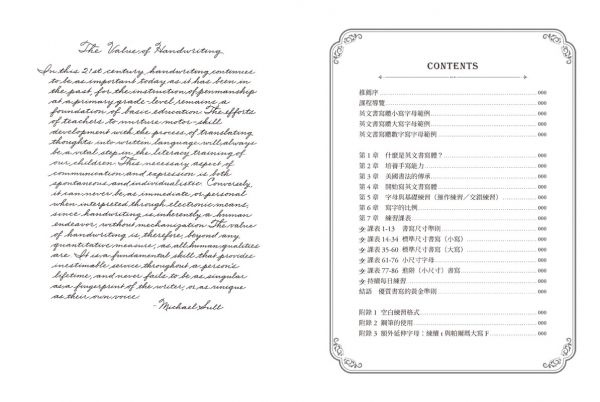 The Value of Handwriting
In this 21st century, handwriting continues
to be as important today as it has been in
the past, for the instruction of penmanship
at a primary grade-level remains a
foundation of basic education. The efforts
of teachers to nurture motor-skill
development with the process of translating
thoughts into written language will always
be a vital step in the literacy training of
our children. This necessary aspect of
communication and expression is both
spontaneous and individualistic. Conversely,
it can never be as immediate, or personal
when interpreted through electronic means,
since handwriting is inherently a human
endeavor, without mechanization. The value
of handwriting is, therefore, beyond any
quantitative measure, as all human qualities
are. It is a fundamental skill that provides
inestimable service throughout a person's
lifetime, and never fails to be as singular
as a fingerprint of the writer, or as unique
as their own voice.
- Michael Sull
CONTENTS
推薦序 000
課程導覽 000
英文書寫體小寫字母範例 000
英文書寫體大寫字母範例 000
英文書寫體數字寫字母範例 000
第 1 章 什麼是英文書寫體？ 000
第 2 章 培養手寫能力 000
第 3 章 美國書法的傳承 000
第 4 章 開始寫英文書寫體 000
第 5 章 字母與基礎練習（運作練習／交錯練習） 000
第 6 章 寫字的比例 000
第 7 章 練習課表 000
課表 1-13 書寫尺寸準則 000
課表 14-34 標準尺寸書寫（小寫） 000
課表 35-60 標準尺寸書寫（大寫） 000
課表 61-76 小尺寸字母 000
課表 77-86 進階（小尺寸）書寫 000
持續每日練習 000
結語 優質書寫的黃金準則 000
附錄 1 空白練習格式 000
附錄 2 鋼筆的使用 000
附錄 3 額外延伸字母：練續 t 與帕爾瑪大寫 F 000